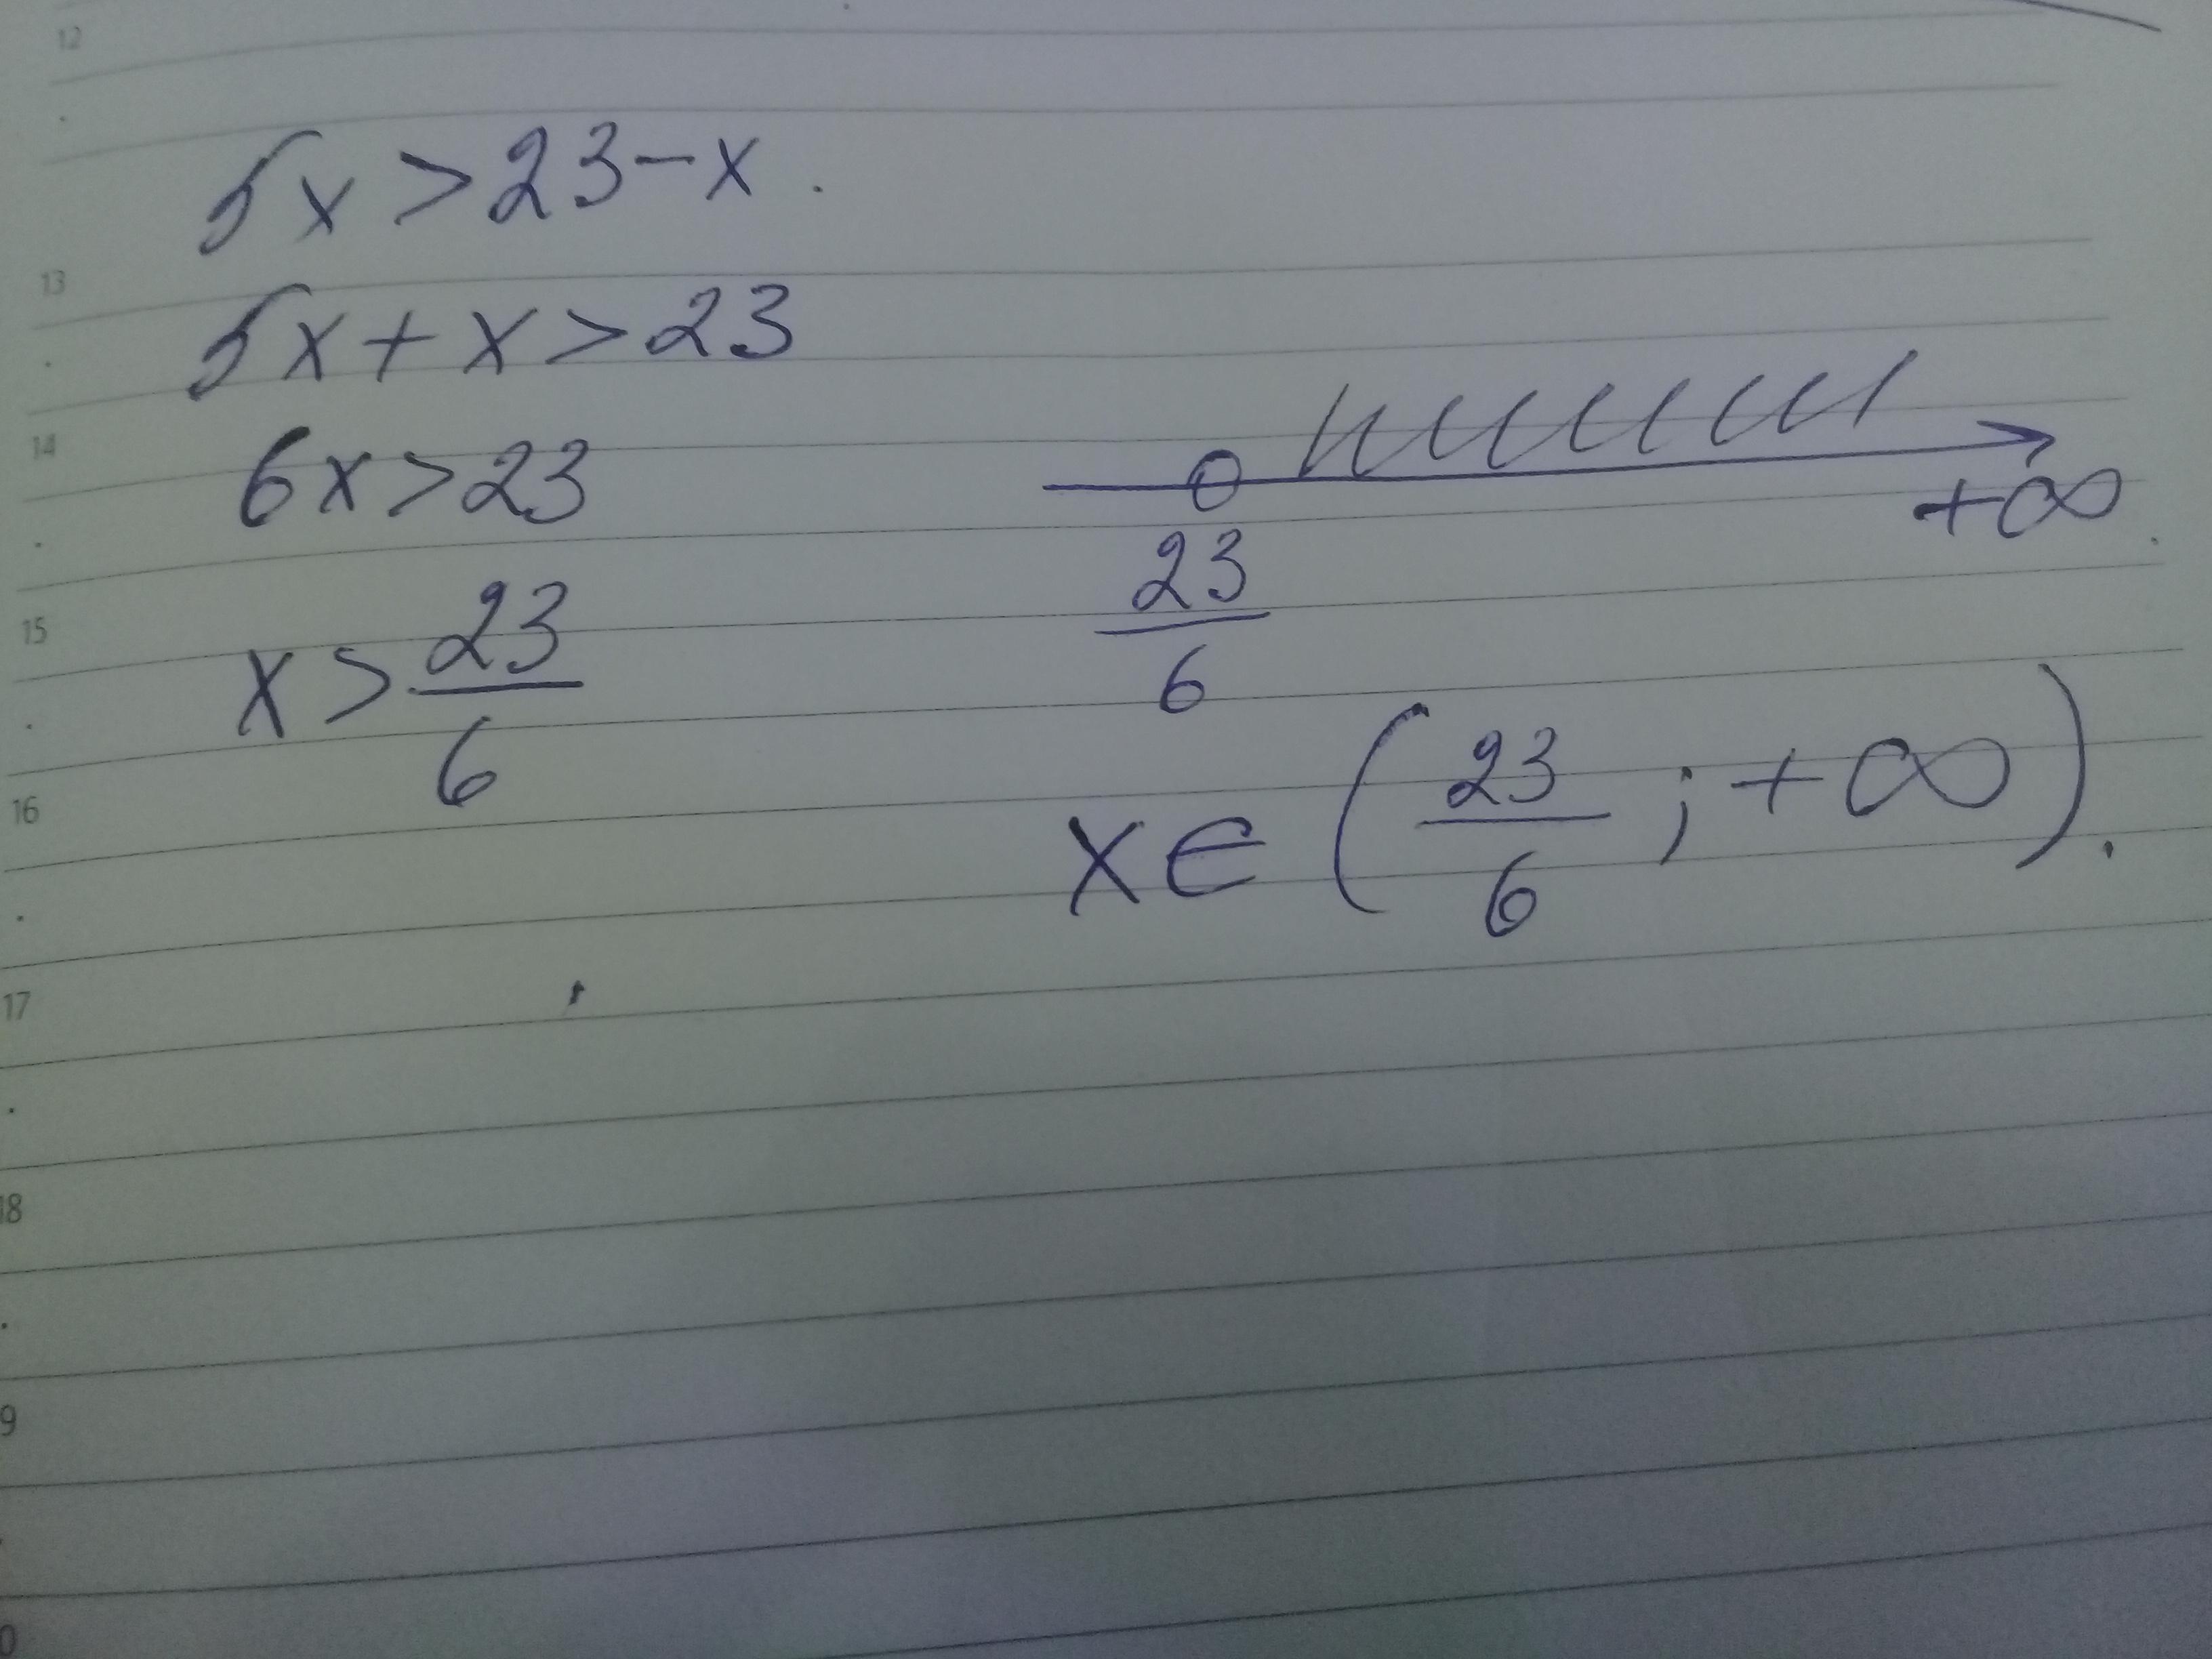 12
5x > 23 - x.
13
5x + x > 23
14
6x > 23
+∞
23/6
15
x > 23/6
16
x ∈ (23/6 ; +∞).
17
18
9
0